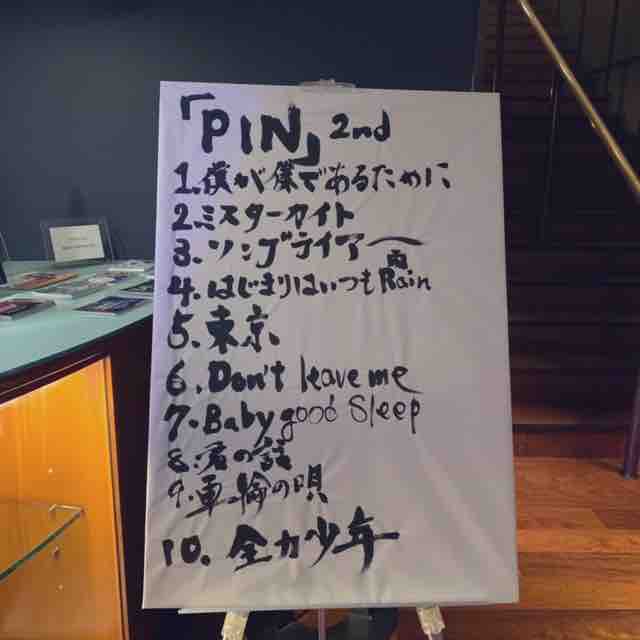 「PIN」2nd
1.僕が僕であるために
2.ミスターカイト
3.ソングライアー
4.はじまりはいつも雨Rain
5.東京
6.Don't leave me
7.Baby good Sleep
8.君の話
9.車輪の唄
10.全力少年